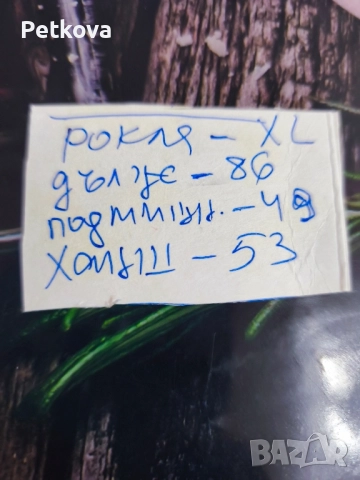 Petkova
рокля - XL
дълж - 86
подмишн. - 49
Ханш - 53
BAZAR